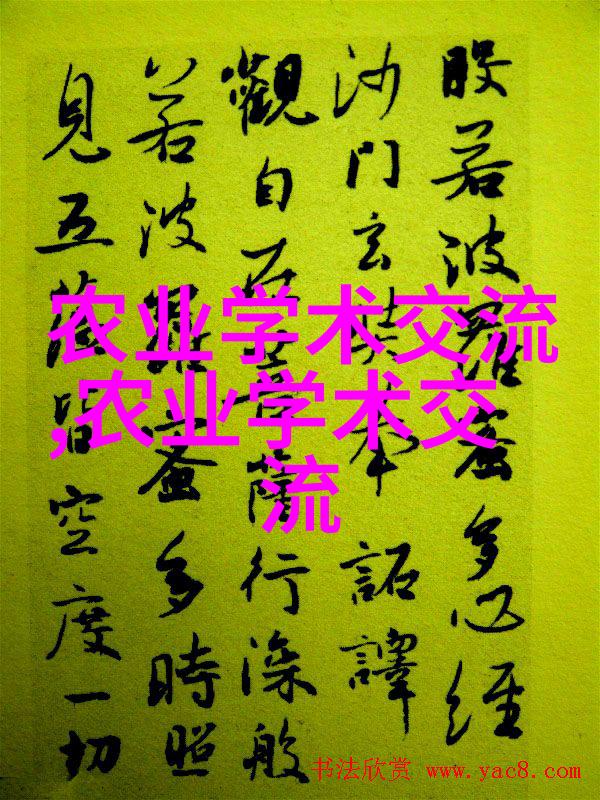 般若波羅蜜多心經
沙門玄奘奉 詔譯
觀自在菩薩行深般
若波羅蜜多時照
見五蘊皆空度一切
农业学术交流
,农业学术交
流
书法欣赏 www.yac8.com